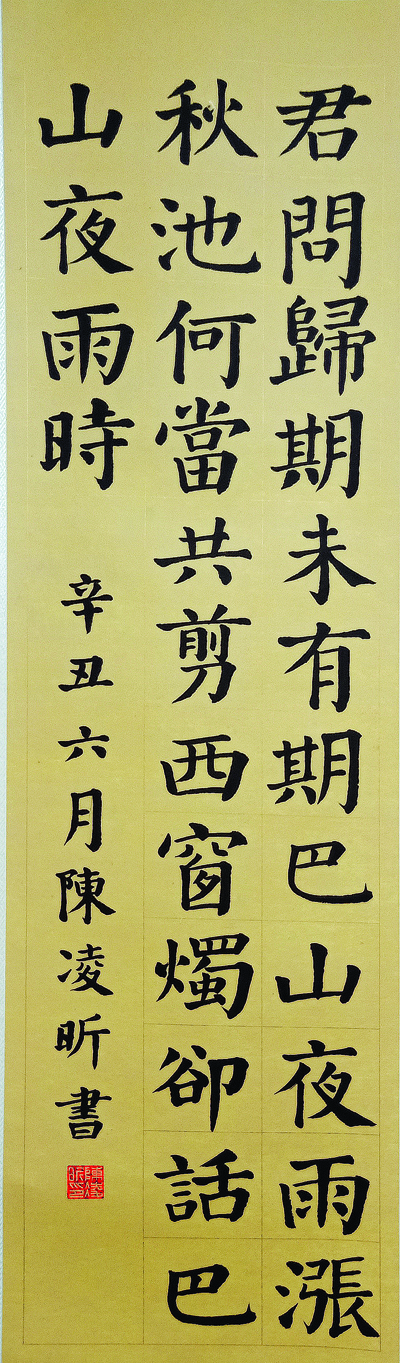 君問歸期未有期巴山夜雨漲
秋池何當共剪西窗燭卻話巴
山夜雨時
辛丑六月陳凌昕書